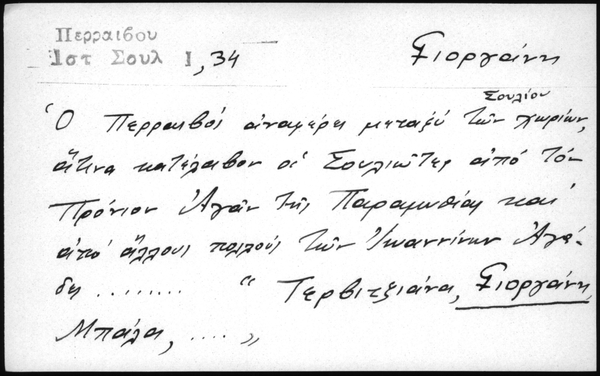 Περραιβου
Ιστ Σουλ Ι, 34
Γιοργάνη
Σουλίου
Ὁ Περραιβός ἀναφέρει μεταξύ τῶν χωρίων,
ἅτινα κατέλαβον οἱ Σουλιῶτες ἀπό τόν
Πρόνιον Ἀγᾶν τῆς Παραμυθίας καί
ἀπό ἄλλους πολλούς τῶν Ἰωαννίνων Ἀγά-
δες ........ " Τερβιτζιάνα, Γιοργάνη,
Μπάλα, .... "